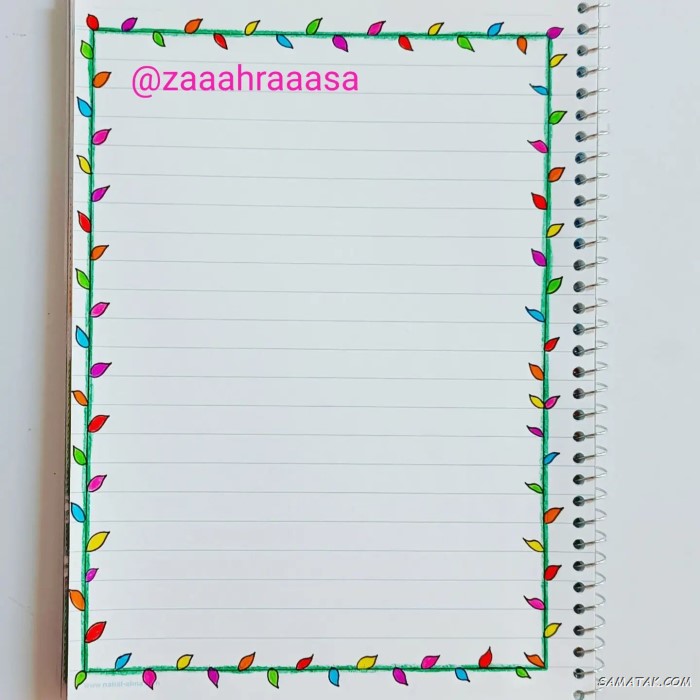 @zaaahraaasa
SAMATAK.COM